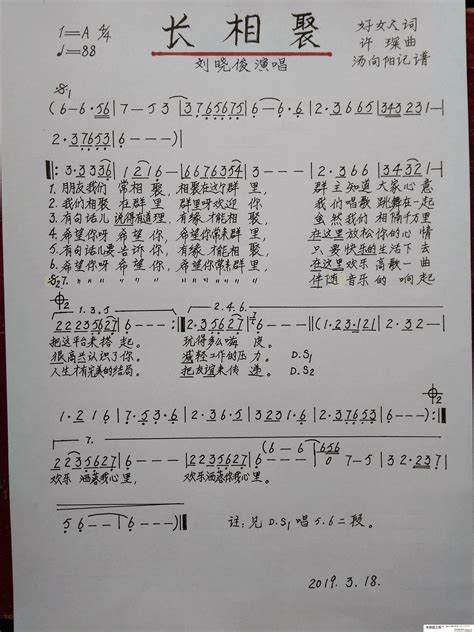 1=A 4/4
♩=88
长相聚
刘晓俊演唱
好女大词
许 琛曲
汤向阳记谱
(6-6·56|7-53|3765675|6---|2·365|343231-|
2·37653|6---)|
‖:3·3336|1̇1̇6-|6676354|3---|2·366|34321-|
1.朋友我们 常相聚,相聚在这个群里, 群主知道大家心意
2.我们相聚 在群里 群里呀欢迎你 我们唱歌跳舞在一起
3.有句话儿 说得有道理,有缘才能相聚 虽然我们相隔千里
4.希望你呀 希望你 希望你常来群里, 在这里放松你的心情
5.有句话儿要告诉你, 有缘才能相聚 只要快乐的生活下去
6.希望你呀 希望你, 希望你常来群里, 在这里欢乐高歌一曲
7. 〃 〃 〃 〃 〃 伴随音乐的响起
1.3.5.
2.4.6.
2235627|6---:‖2·35627|6---|(1·23·121|
把这平台来搭起。 玩得多么嗨皮。
很高兴认识了你。 减轻工作的压力。D.S1
人生才有完美的结局。 把友谊来传递。D.S2
1·216|7·53·6|2·7·6·|2·2316|2·37653|6---):‖
7.
(6-6-|6---656
2235627|6---|2235627|6---|0 7-5|32·37|
欢乐洒落我心里, 欢乐洒落你我心里。
56--|6---‖
注:兑D.S1唱5.6二段。
2019.3.18.